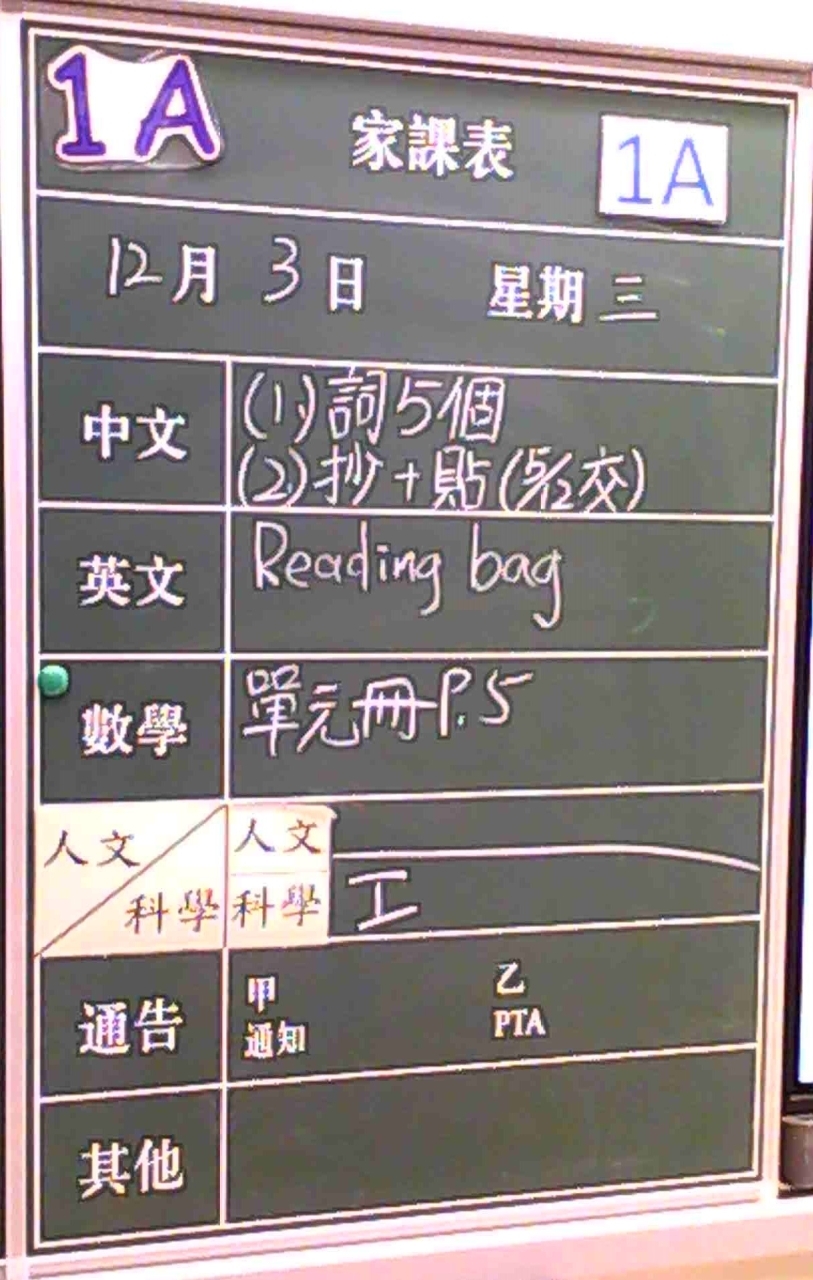 1A 家課表 1A
12月 3日 星期三
中文 (1)詞5個
(2)抄+貼(5/12交)
英文 Reading bag
數學 單元冊P.5
人文 人文
科學 科學 工
通告 甲 乙
通知 PTA
其他